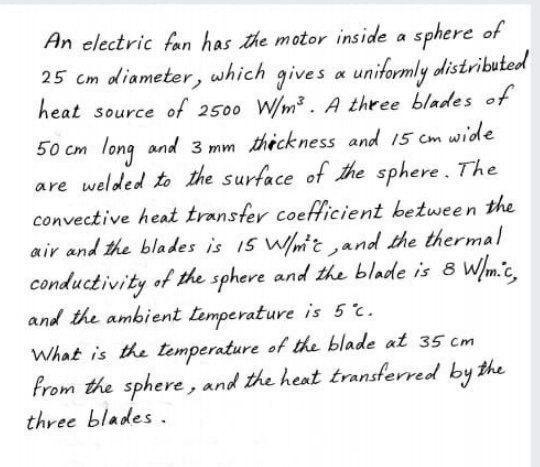 An electric fan has the motor inside a sphere of
25 cm diameter, which gives a uniformly distributed
heat source of 2500 W/m³. A three blades of
50 cm long and 3 mm thickness and 15 cm wide
are welded to the surface of the sphere. The
convective heat transfer coefficient between the
air and the blades is 15 W/m²c, and the thermal
conductivity of the sphere and the blade is 8 W/m.°c,
and the ambient temperature is 5 °c.
What is the temperature of the blade at 35 cm
from the sphere, and the heat transferred by the
three blades.